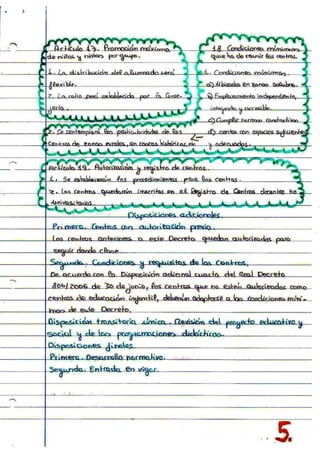 Artículo 17. Promoción máxima
de niños y niñas por grupo.
1. La distribución del alumnado será
flexible.
2. La ratio será establecida por la Conse-
jería.
2. Se contemplará las particularidades de las
Centros de zonas rurales, en cascos históricos, etc.
18. Condiciones mínimas
que ha de reunir los centros.
1. Condiciones mínimas.
a) Ubicados en zonas salubres.
b) Emplazamiento independiente,
integrado y accesible.
c) Cumplir normas constructivas.
d) contar con espacios suficientes
y adecuados.
Artículo 19. Autorización y registro de centros.
1. Se establecerán los procedimientos para los centros.
2. Los centros quedarán inscritos en el Registro de Centros docentes no
universitarios.
Disposiciones adicionales.
Primera. Centros con autorización previa.
Los centros anteriores a este Decreto quedan autorizados para
seguir dando clase.
Segunda. Condiciones y requisitos de los Centros.
De acuerdo con la Disposición adicional cuarta del Real Decreto
806/2006 de 30 de junio, los centros que no estén autorizados como
centros de educación infantil, deberán adaptarse a las condiciones míni-
mas de este Decreto.
Disposición transitoria única. Revisión del proyecto educativo y
social y de las programaciones didácticas.
Disposiciones finales.
Primera. Desarrollo normativo.
Segunda. Entrada en vigor.
5.